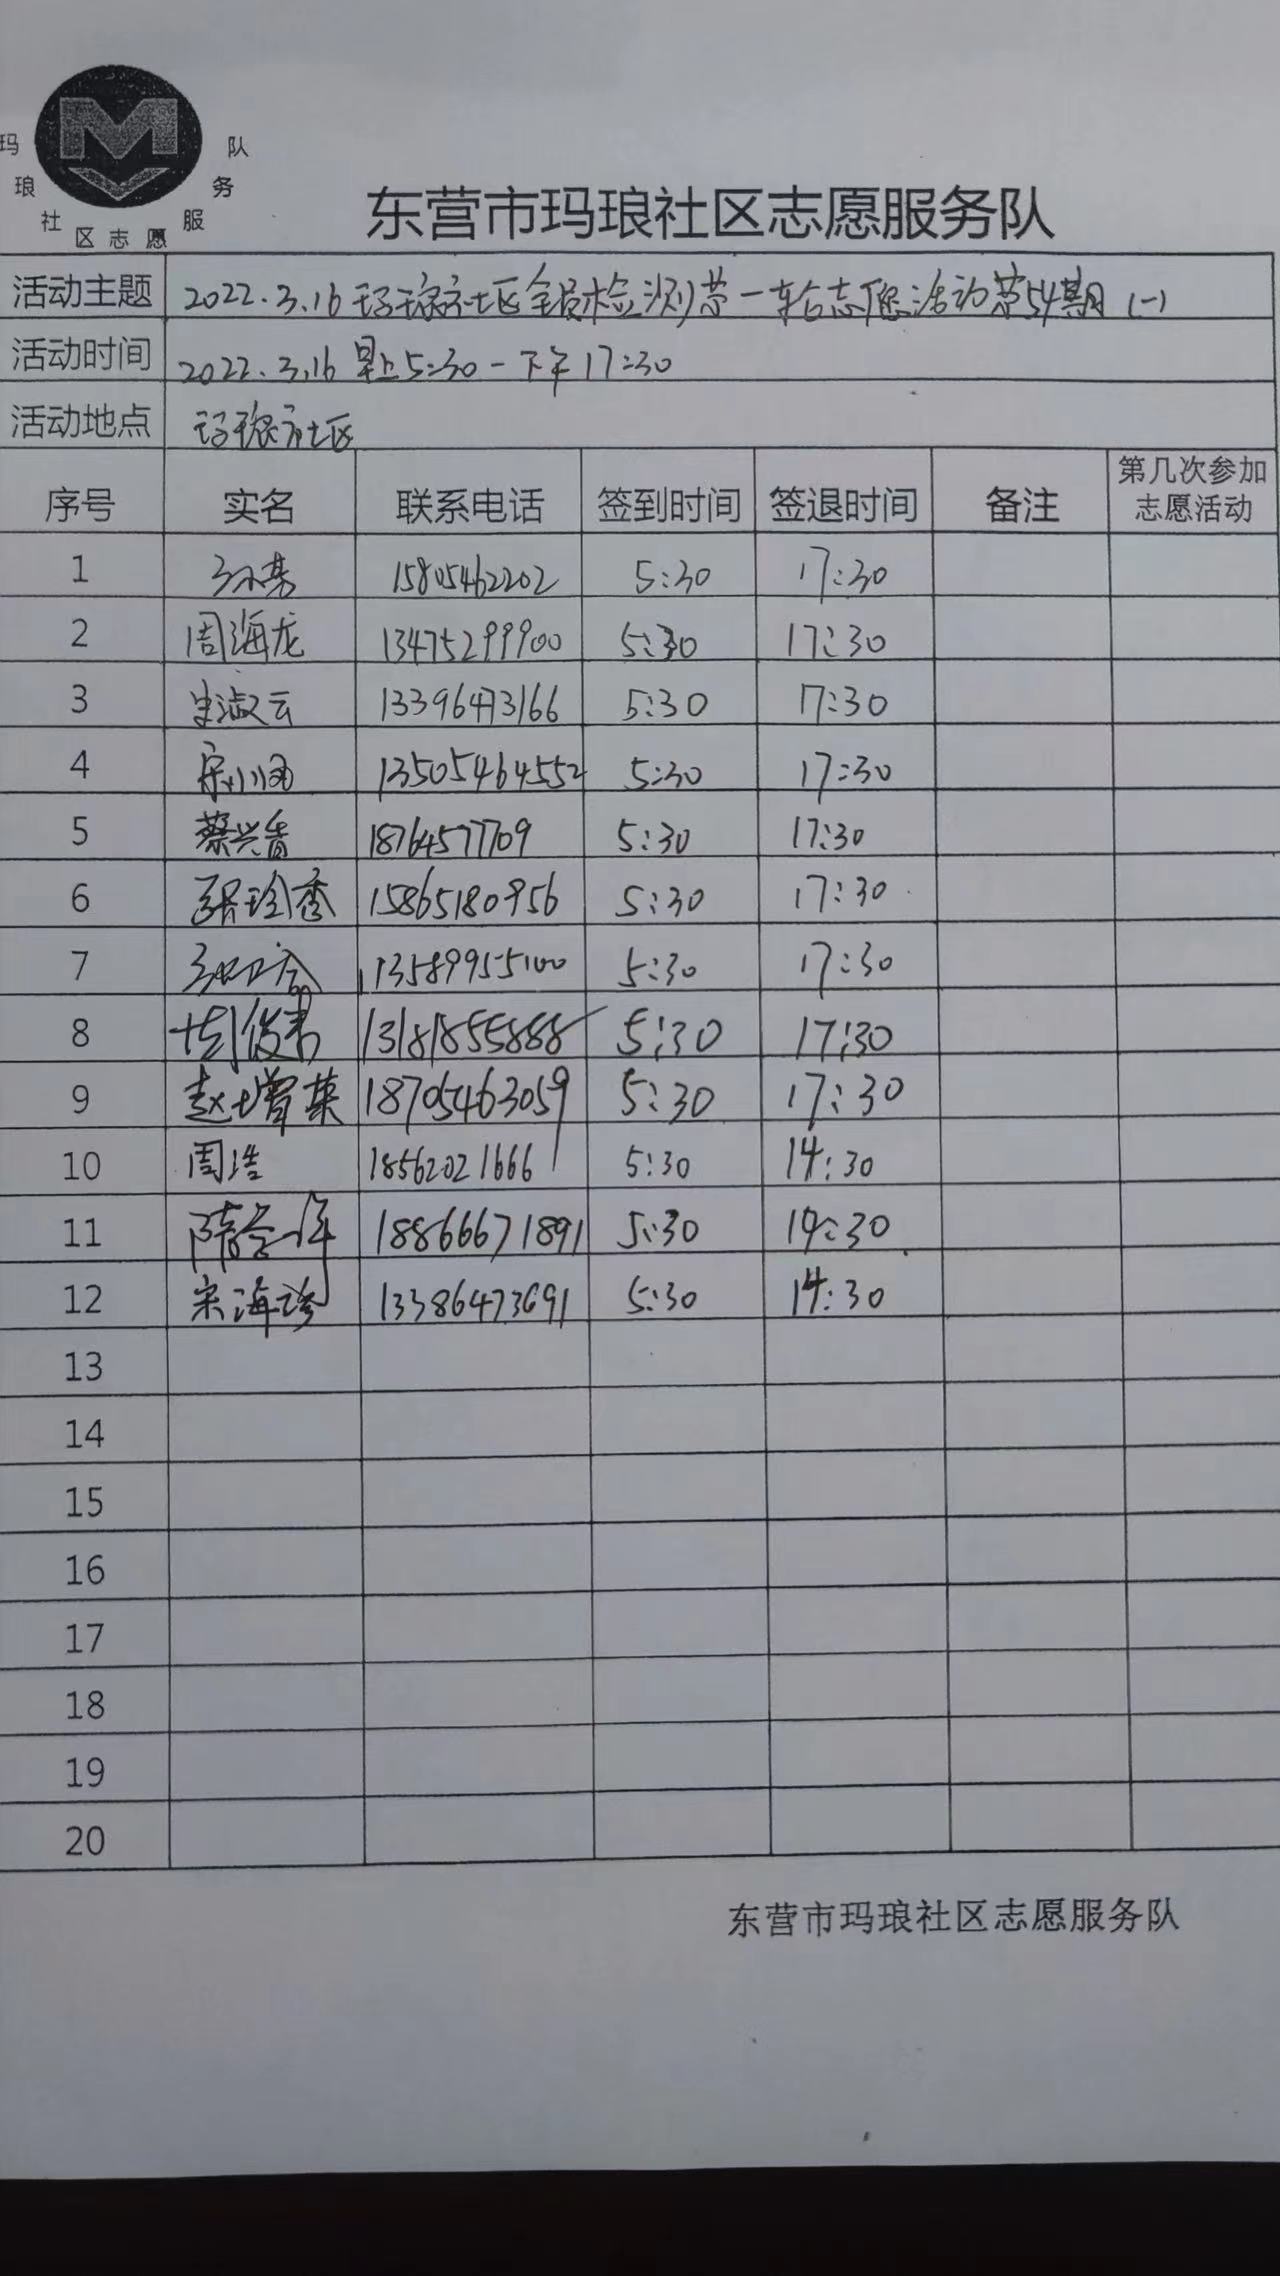 玛琅社区志愿服务队
东营市玛琅社区志愿服务队
活动主题 2022.3.16玛琅社区全员检测第一轮志愿活动第54期(一)
活动时间 2022.3.16 早上5:30-下午17:30
活动地点 玛琅社区
序号 实名 联系电话 签到时间 签退时间 备注 第几次参加志愿活动
1 15805462202 5:30 17:30
2 周海龙 13475299900 5:30 17:30
3 淑云 13396473166 5:30 17:30
4 13505464552 5:30 17:30
5 蔡兴香 18764577709 5:30 17:30
6 张珍香 15865180956 5:30 17:30
7 13589955100 5:30 17:30
8 13181855888 5:30 17:30
9 赵增英 18705463059 5:30 17:30
10 周浩 18562021666 5:30 14:30
11 18866671891 5:30 14:30
12 宋海珍 13386473691 5:30 14:30
13
14
15
16
17
18
19
20
东营市玛琅社区志愿服务队